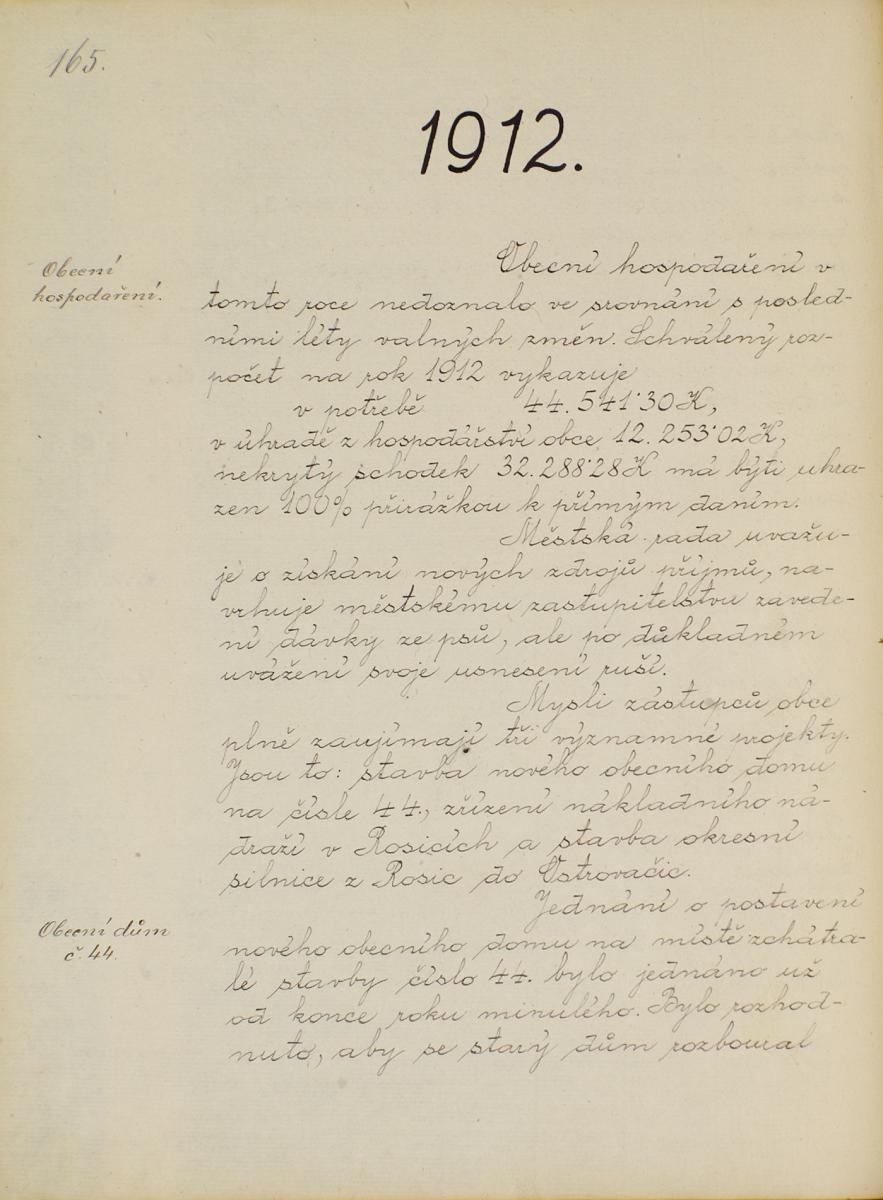 165.
1912.
Obecní
hospodaření.
Obecní hospodaření v
tomto roce nedoznalo ve srovnání s posled-
ními léty valných změn. Schválený roz-
počet na rok 1912 vykazuje
v potřebě 44.541·30 K,
v úhradě z hospodářství obce 12.253·02 K,
nekrytý schodek 32.288·28 K má býti uhra-
zen 100% přirážkou k přímým daním.
Městská rada uvažu-
je o získání nových zdrojů příjmů, na-
vrhuje městskému zastupitelstvu zavede-
ní dávky ze psů, ale po důkladném
uvážení svoje usnesení ruší.
Mysli zástupců obce
plně zaujímají tři významné projekty.
Jsou to: stavba nového obecního domu
na čísle 44., zřízení nákladního ná-
draží v Rosicích a stavba okresní
silnice z Rosic do Ostrovačic.
Obecní dům
č. 44.
Jednání o postavení
nového obecního domu na místě zchátra-
lé stavby číslo 44. bylo jednáno už
od konce roku minulého. Bylo rozhod-
nuto, aby se starý dům rozboural